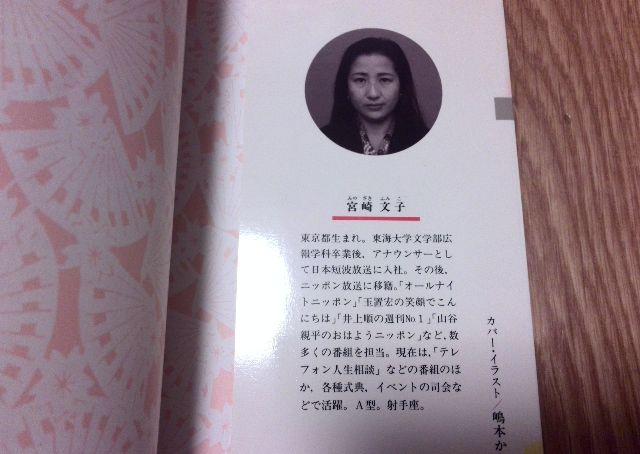 みや ざき ふみ こ
宮崎文子
東京都生まれ。東海大学文学部広
報学科卒業後、アナウンサーとし
て日本短波放送に入社。その後、
ニッポン放送に移籍。「オールナイ
トニッポン」「玉置宏の笑顔でこん
にちは」「井上順の週刊No.1」「山谷
親平のおはようニッポン」など、数
多くの番組を担当。現在は、「テレ
フォン人生相談」などの番組のほ
か、各種式典、イベントの司会な
どで活躍。A型。射手座。
カバー・イラスト/嶋本か